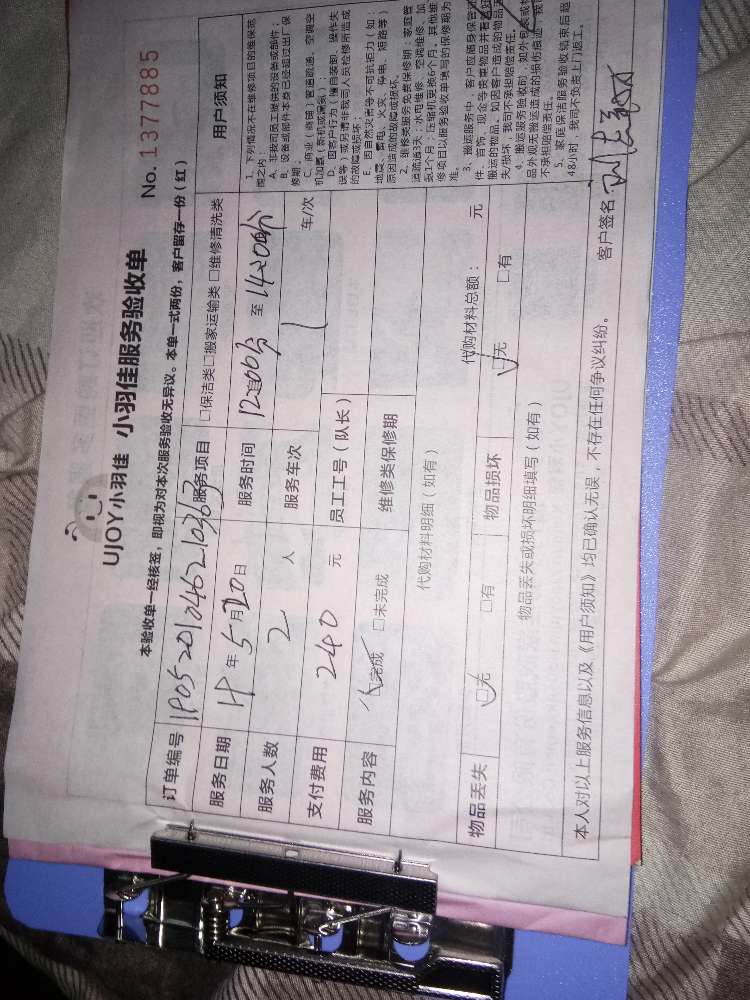 UJOY小羽佳 小羽佳服务验收单
No. 1377885
本验收单一经核签，即视为对本次服务验收无异议。本单一式两份，客户留存一份（红）
订单编号 1905201046210363
服务项目 □保洁类 □搬家运输类 □维修清洗类
用户须知
服务日期 19年5月20日
服务时间 12点00分 至 14点00分
服务人数 2 人
服务车次 1 车/次
支付费用 240 元
员工工号（队长）
服务内容 □完成 □未完成
维修类保修期
代购材料明细（如有）
代购材料总额： 元
物品丢失 □无 □有
物品损坏 □无 □有
物品丢失或损坏明细填写（如有）
1. 下列情况不在维修项目的维保范
围之内：
A. 非我司员工提供的设备或部件；
B. 设备或部件本身已经超过出厂保
修期；
C. 商业（商铺）管道疏通、空调空
机加氟（新机或漏氟）；
D. 因客户行为（擅自装卸、操作失
误等）或另请非我司人员检修所造成
的故障或损坏；
E. 因自然灾害等不可抗拒力（如：
地震、雷电、火灾、停电、短路等）
原因造成的故障或损坏。
2. 维修类服务免费保修期：家庭管
道疏通3天，水电维修、空调维修、加
氟1个月；压缩机更换6个月。其他维
修项目以服务验收单填写的保修期为
准。
3. 搬运服务中，客户应随身保管
件、首饰、现金等贵重物品并看
搬运的物品。如因客户造成的物品
失/损坏，我司不承担赔偿责任。
4. 搬运服务验收前，如外包装或
品外观无搬运造成的损伤痕迹，我
不承担赔偿责任。
5. 家庭保洁服务验收结束后超
48小时，我司不负责上门返工。
本人对以上服务信息以及《用户须知》均已确认无误，不存在任何争议纠纷。
客户签名